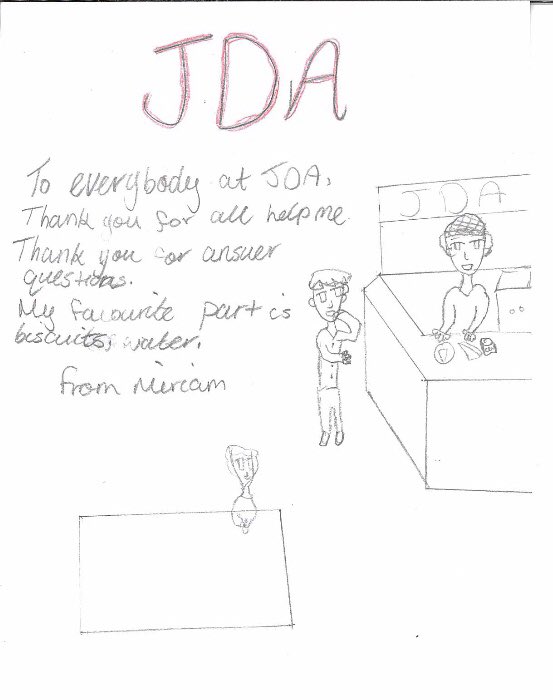 JDA
To everybody at JDA,
Thank you for all help me
Thank you for answer
questions.
My favourite part is
biscuits, water.
from Miriam
JDA